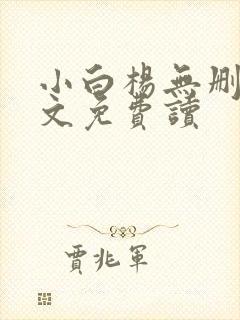 小白楊無刪
文免費讀
賈兆軍